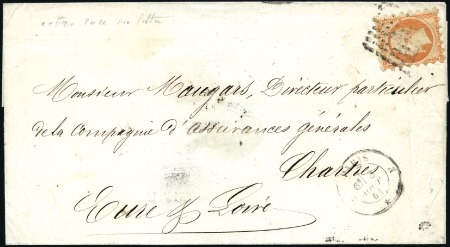 Monsieur Maugars, Directeur particulier
de la Compagnie d'assurances générales
Chartres
Eure & Loire